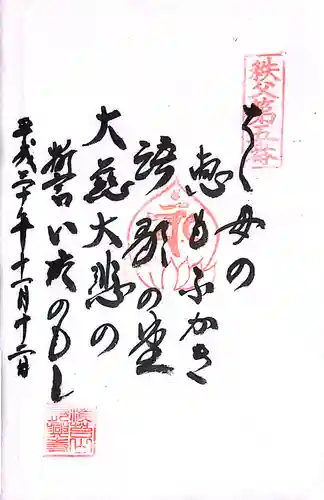 秩父第五番
ちゝ母の
恵もふかき
語歌の堂
大慈大悲の
誓い次のもし
平成二十年十一月十二日